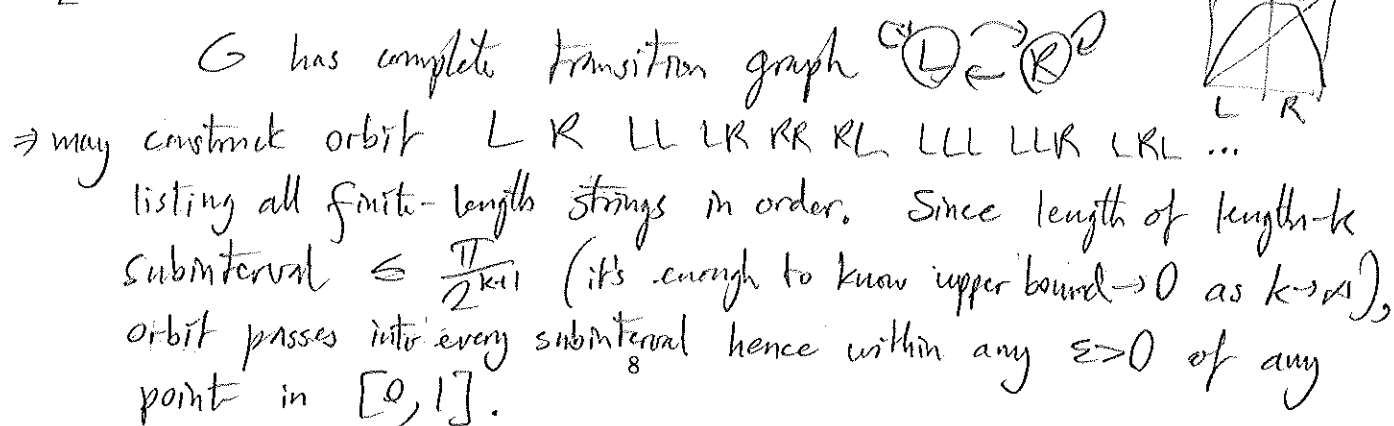 G has complete transition graph L R
L R
⇒ may construct orbit L R LL LR RR RL LLL LLR LRL ...
listing all finite-length strings in order. Since length of length-k
subinterval ≤ π/2^(k+1) (it's enough to know upper bound → 0 as k→∞),
orbit passes into every subinterval hence within any ε>0 of any
8
point in [0,1].